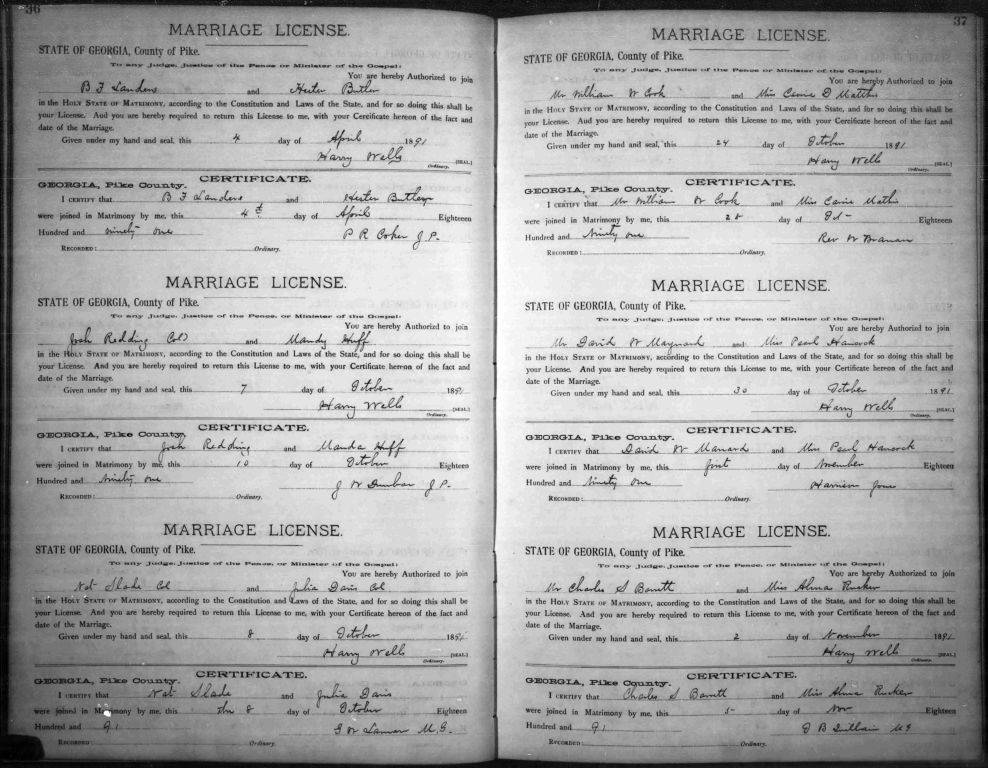 36
MARRIAGE LICENSE.
STATE OF GEORGIA, County of Pike.
To any Judge, Justice of the Peace, or Minister of the Gospel:
You are hereby Authorized to join
B F Landers and Hester Butler
in the HOLY STATE OF MATRIMONY, according to the Constitution and Laws of the State, and for so doing this shall be
your License. And you are hereby required to return this License to me, with your Certificate hereon of the fact and
date of the Marriage.
Given under my hand and seal, this 4 day of April 1891
Harry Wells [SEAL.]
Ordinary.
CERTIFICATE.
GEORGIA, Pike County.
I CERTIFY that B F Landers and Hester Butler
were joined in Matrimony by me, this 4th day of April Eighteen
Hundred and ninety one P R Coker J P.
RECORDED: Ordinary.
MARRIAGE LICENSE.
STATE OF GEORGIA, County of Pike.
To any Judge, Justice of the Peace, or Minister of the Gospel:
You are hereby Authorized to join
Josh Redding Cold and Mandy Huff
in the HOLY STATE OF MATRIMONY, according to the Constitution and Laws of the State, and for so doing this shall be
your License. And you are hereby required to return this License to me, with your Certificate hereon of the fact and
date of the Marriage.
Given under my hand and seal, this 7 day of October 1891
Harry Wells [SEAL.]
Ordinary.
CERTIFICATE.
GEORGIA, Pike County.
I CERTIFY that Josh Redding and Manda Huff
were joined in Matrimony by me, this 10 day of October Eighteen
Hundred and Ninety one J W Dunbar J P.
RECORDED: Ordinary.
MARRIAGE LICENSE.
STATE OF GEORGIA, County of Pike.
To any Judge, Justice of the Peace, or Minister of the Gospel:
You are hereby Authorized to join
Nat Slade Col and Julia Davis Col
in the HOLY STATE OF MATRIMONY, according to the Constitution and Laws of the State, and for so doing this shall be
your License. And you are hereby required to return this License to me, with your Certificate hereon of the fact and
date of the Marriage.
Given under my hand and seal, this 8 day of October 1891
Harry Wells [SEAL.]
Ordinary.
CERTIFICATE.
GEORGIA, Pike County.
I CERTIFY that Nat Slade and Julia Davis
were joined in Matrimony by me, this the 8 day of October Eighteen
Hundred and 91 G W Lamar M.G.
RECORDED: Ordinary.
37
MARRIAGE LICENSE.
STATE OF GEORGIA, County of Pike.
To any Judge, Justice of the Peace, or Minister of the Gospel:
You are hereby Authorized to join
Mr William W Cook and Miss Carrie D Matthis
in the HOLY STATE OF MATRIMONY, according to the Constitution and Laws of the State, and for so doing this shall be
your License. And you are hereby required to return this License to me, with your Certificate hereon of the fact and
date of the Marriage.
Given under my hand and seal, this 24 day of October 1891
Harry Wells [SEAL.]
Ordinary.
CERTIFICATE.
GEORGIA, Pike County.
I CERTIFY that Mr William W Cook and Miss Carrie Mathis
were joined in Matrimony by me, this 28 day of Oct Eighteen
Hundred and Ninety one Rev W
RECORDED: Ordinary.
MARRIAGE LICENSE.
STATE OF GEORGIA, County of Pike.
To any Judge, Justice of the Peace, or Minister of the Gospel:
You are hereby Authorized to join
Mr David W Maynard and Miss Pearl Hancock
in the HOLY STATE OF MATRIMONY, according to the Constitution and Laws of the State, and for so doing this shall be
your License. And you are hereby required to return this License to me, with your Certificate hereon of the fact and
date of the Marriage.
Given under my hand and seal, this 30 day of October 1891
Harry Wells [SEAL.]
Ordinary.
CERTIFICATE.
GEORGIA, Pike County.
I CERTIFY that David W Manard and Miss Pearl Hancock
were joined in Matrimony by me, this first day of November Eighteen
Hundred and Ninety One Harrison Jones
RECORDED: Ordinary.
MARRIAGE LICENSE.
STATE OF GEORGIA, County of Pike.
To any Judge, Justice of the Peace, or Minister of the Gospel:
You are hereby Authorized to join
Mr Charles S Barrett and Miss Alma Rucker
in the HOLY STATE OF MATRIMONY, according to the Constitution and Laws of the State, and for so doing this shall be
your License. And you are hereby required to return this License to me, with your Certificate hereon of the fact and
date of the Marriage.
Given under my hand and seal, this 2 day of November 1891
Harry Wells [SEAL.]
Ordinary.
CERTIFICATE.
GEORGIA, Pike County.
I CERTIFY that Charles S Barrett and Miss Alma Rucker
were joined in Matrimony by me, this 5 day of Nov Eighteen
Hundred and 91 M G
RECORDED: Ordinary.